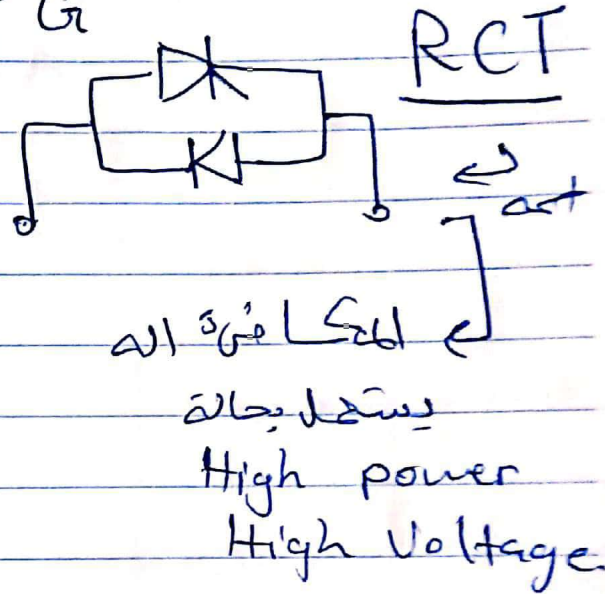 G
RCT
المكافئ اله
يستعمل بحالة
High power
High Voltage.